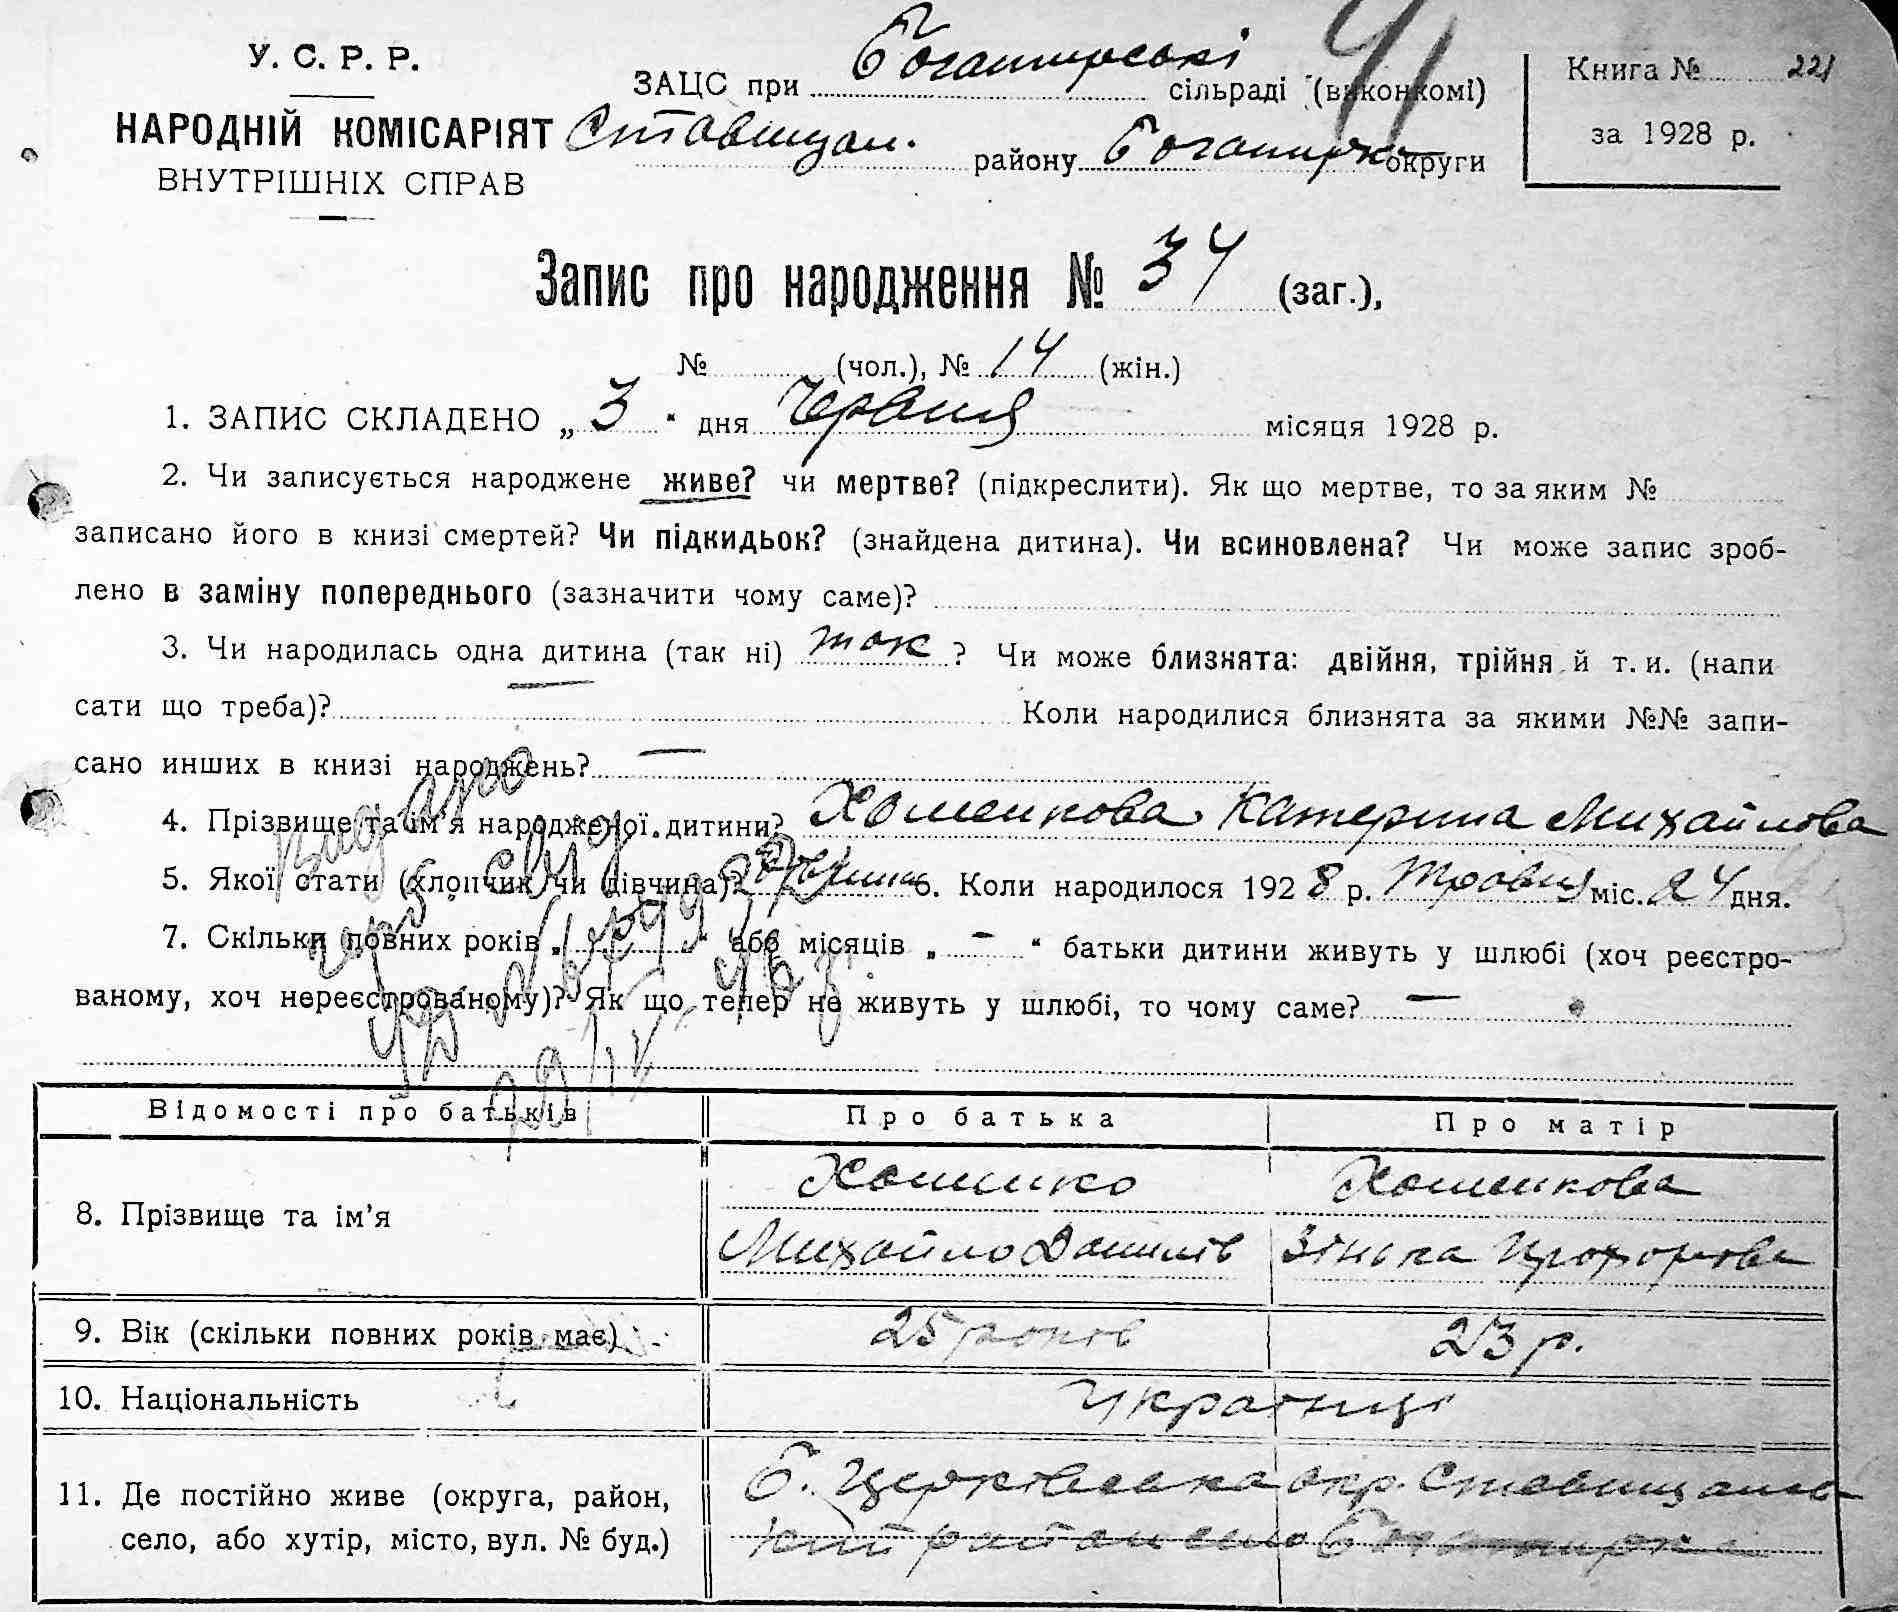 У. С. Р. Р.
НАРОДНІЙ КОМІСАРІЯТ
ВНУТРІШНІХ СПРАВ
ЗАЦС при Богатирські сільраді (виконкомі)
Ставищан. району Богатирка округи
Книга № 221
за 1928 р.
41
Запис про народження № 34 (заг.),
№ (чол.), № 14 (жін.)
1. ЗАПИС СКЛАДЕНО „ 3 “ дня Червня місяця 1928 р.
2. Чи записується народжене живе? чи мертве? (підкреслити). Як що мертве, то за яким №
записано його в книзі смертей? Чи підкидьок? (знайдена дитина). Чи всиновлена? Чи може запис зроб-
лено в заміну попереднього (зазначити чому саме)?
3. Чи народилась одна дитина (так ні) так ? Чи може близнята: двійня, трійня й т. и. (напи
сати що треба)? — Коли народилися близнята за якими №№ запи-
сано инших в книзі народжень? —
4. Прізвище та ім'я народженої дитини? Хоменкова Катерина Михайлова
5. Якої стати (хлопчик чи дівчина)? дівчина 6. Коли народилося 1928 р. Травня міс. 24 дня.
7. Скільки повних років „ “ або місяців „ – “ батьки дитини живуть у шлюбі (хоч реєстро-
ваному, хоч нереєстрованому)? Як що тепер не живуть у шлюбі, то чому саме? —
Видано
Відомості про батьків Про батька Про матір
8. Прізвище та ім'я Хоменко Хоменкова
Михайло Данилів Зінька Прохорова
9. Вік (скільки повних років має) 25 років 23 р.
10. Національність Українці
11. Де постійно живе (округа, район, Б. Церківська окр. Ставищансь
село, або хутір, місто, вул. № буд.) кий район село Богатирка